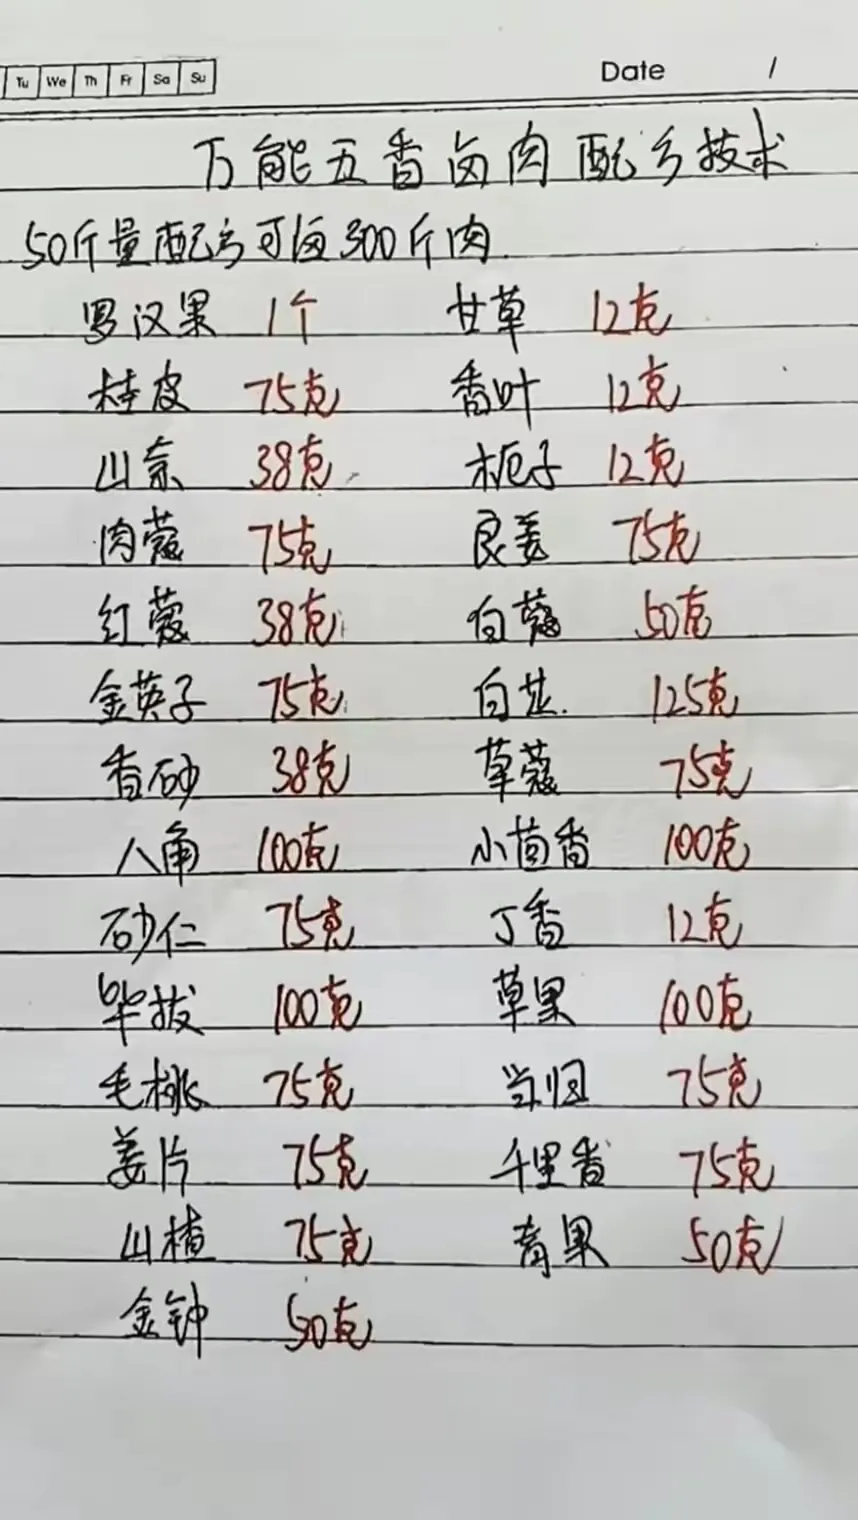 Tu We Th Fr Sa Su
Date /
万能五香卤肉配方技术
50斤量配方可卤300斤肉
罗汉果 1个 甘草 12克
桂皮 75克 香叶 12克
山奈 38克 栀子 12克
肉蔻 75克 良姜 75克
红蔻 38克 白蔻 50克
金英子 75克 白芷 125克
香砂 38克 草蔻 75克
八角 100克 小茴香 100克
砂仁 75克 丁香 12克
毕拔 100克 草果 100克
毛桃 75克 当归 75克
姜片 75克 千里香 75克
山楂 75克 青果 50克
金钟 50克